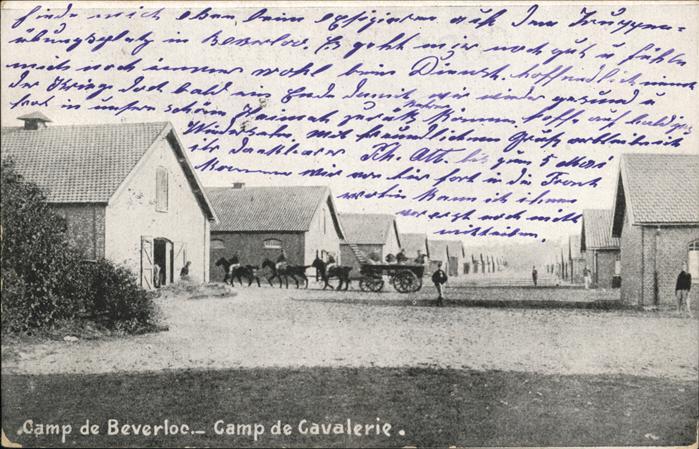 finde mich eben, beim exziziren auf dem Truppen-
übungsplatz in Beverloo. Es geht mir noch gut u fühle
mich noch immer wohl beim Dienst. hoffendlich nimt
der Krieg doch bald ein Ende damit wir wieder gesund u
froh in unsere schöne Heimat zurük kehren können, hoffe auf baldiges
Wiedersehn, mit freundlichem Gruß
ihr dankbarer Sch. Ott. bis zum 5 März
kommen wir von hir fort in die Front
wohin kann ich ihnen
vorerst noch nicht
mitteilen.
Camp de Beverloo._ Camp de Cavalerie.